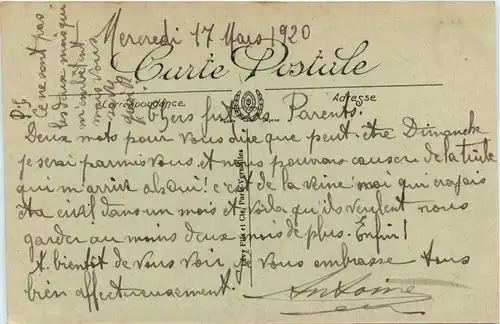 Mercredi 17 Mars 1920
Carte Postale
Correspondance
Adresse
Chers futurs Parents.
Deux mots pour vous dire que peut-être Dimanche
je serai parmi vous et nous pouvons causer de la tuile
qui m'arrive absqui! c'est de la veine! moi qui croyais
être civil dans un mois et voila qu'ils veulent nous
garder au moins deux mois de plus. Enfin!
A bientôt de vous voir je vous embrasse tous
bien affectueusement.
Antoine
Lévy Fils et Cie, Paris
P.S
Ce ne sont pas
les deux mois qui
m'embêtent
mais vous